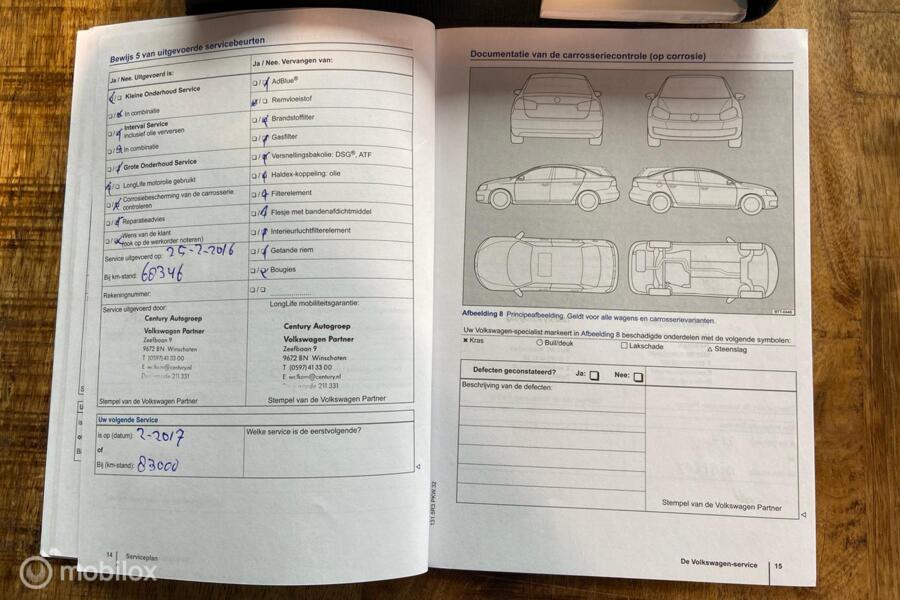 Bewijs 5 van uitgevoerde servicebeurten
Ja / Nee. Uitgevoerd is:
Kleine Onderhoud Service
In combinatie
Interval Service
inclusief olie verversen
In combinatie
Grote Onderhoud Service
LongLife motorolie gebruikt
Corrosiebescherming van de carrosserie
controleren
Reparatieadvies
Wens van de klant
(ook op de werkorder noteren)
Service uitgevoerd op: 25-2-2016
Bij km-stand: 60346
Rekeningnummer:
Service uitgevoerd door:
Century Autogroep
Volkswagen Partner
Zeefbaan 9
9672 BN Winschoten
T (0597) 41 33 00
211.331
Stempel van de Volkswagen Partner
Ja / Nee. Vervangen van:
AdBlue®
Remvloeistof
Brandstoffilter
Gasfilter
Versnellingsbakolie: DSG®, ATF
Haldex-koppeling: olie
Filterelement
Flesje met bandenafdichtmiddel
Interieurluchtfilterelement
Getande riem
Bougies
LongLife mobiliteitsgarantie:
Century Autogroep
Volkswagen Partner
Zeefbaan 9
9672 BN Winschoten
T (0597) 41 33 00
211.331
Stempel van de Volkswagen Partner
Uw volgende Service
is op (datum): 2-2017
of
Bij (km-stand): 83000
Welke service is de eerstvolgende?
14 Serviceplan
131.5R3.PKW.32
Documentatie van de carrosseriecontrole (op corrosie)
BTT-0446
Afbeelding 8 Principeafbeelding. Geldt voor alle wagens en carrosserievarianten.
Uw Volkswagen-specialist markeert in Afbeelding 8 beschadigde onderdelen met de volgende symbolen:
Kras Buil/deuk Lakschade Steenslag
Defecten geconstateerd? Ja: Nee:
Beschrijving van de defecten:
Stempel van de Volkswagen Partner
De Volkswagen-service 15
mobilox